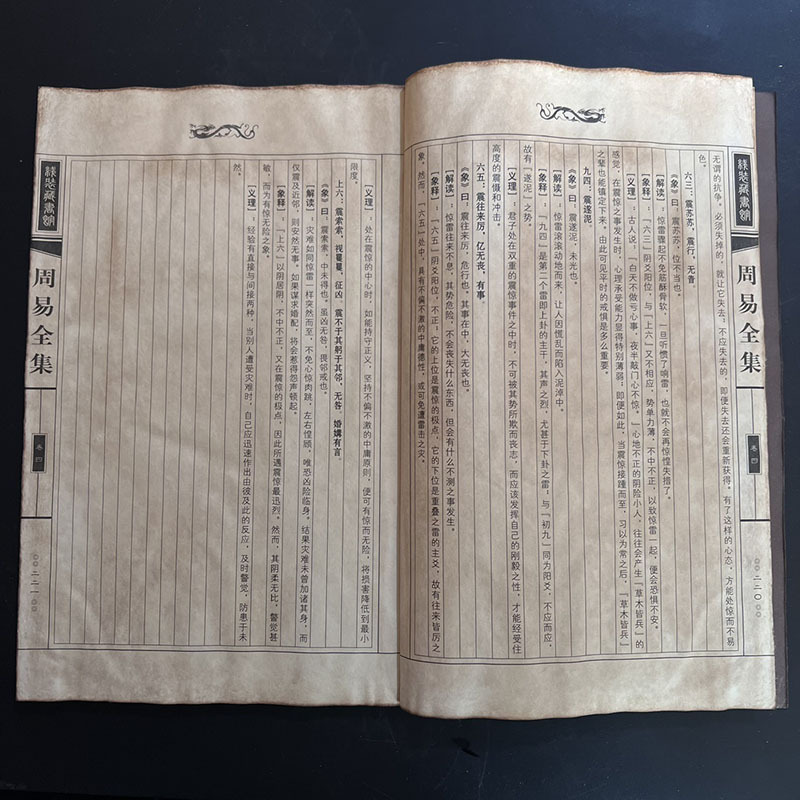 线装藏书馆
周易全集
卷四
二二〇
无谓的抗争。必须失掉的，就让它失去；不应失去的，即便失去还会重新获得。有了这样的心态，方能处惊而不易
色。
六三：震苏苏，震行，无眚
《象》曰：震苏苏，位不当也。
【解读】：惊雷骤起不免筋酥骨软，一旦听惯了响雷，也就不会再惊惶失措了。
【象释】：「六三」阴爻阳位，与「上六」又不相应，势单力薄，不中不正，以致惊雷一起，便会恐惧不安。
【义理】：古人说，「白天不做亏心事，夜半敲门心不惊。」心地不正的阴险小人，往往会产生「草木皆兵」的
感觉，在震惊之事发生时，心理承受能力显得特别薄弱，即便如此，当震惊接踵而至，习以为常之后，「草木皆兵」
之辈也能镇定下来。由此可见平时的戒惧是多么重要。
九四：震遂泥
《象》曰：震遂泥，未光也。
【解读】：惊雷滚滚动地而来，让人因慌乱而陷入泥淖中。
【象释】：「九四」是第一个雷即上卦的主干，其声之烈，尤甚于下卦之雷；与「初九」同为阳爻，不应而应，
故有「遂泥」之势。
【义理】：君子处在双重的震惊事件之中时，不可被其势所欺而丧志，而应该发挥自己的刚毅之性，才能经受住
高度的震慑和冲击。
六五：震往来厉，亿无丧，有事
《象》曰：震往来厉，危行也。其事在中，大无丧也。
【解读】：惊雷往来不息，其势危险，不会丧失什么东西，但会有什么不测之事发生。
【象释】：「六五」阴爻阳位，不正。它的上位是震惊的极点，它的下位是重叠之雷的主爻，故有往来皆厉之
象。然而，「六五」处中，具有不偏不激的中庸德性，或可免遭雷击之灾。
【义理】：处在震惊的中心时，如能持守正义，坚持不偏不激的中庸原则，便可有惊而无险，将损害降低到最小
限度。
上六：震索索，视矍矍，征凶，震不于其躬于其邻，无咎，婚媾有言。
《象》曰：震索索，中未得也。虽凶无咎，畏邻戒也。
【解读】：灾难如同惊雷一样突然而至，不免心惊肉跳，左右惶顾，唯恐凶险临身。结果灾难未曾加诸其身，而
仅震及近邻，则安然无事。如果谋求婚配，将会惹得怨声顿起。
【象释】：「上六」以阴居阴，不中不正，又在震惊的极点，因此所遇震惊最迅烈。然而，其阴柔无比，警觉甚
敏，而为有惊无险之象。
【义理】：经验有直接与间接两种，当别人遭受灾难时，自己应迅速作出由彼及此的反应，及时警觉，防患于未
然。
线装藏书馆
周易全集
卷四
二二一